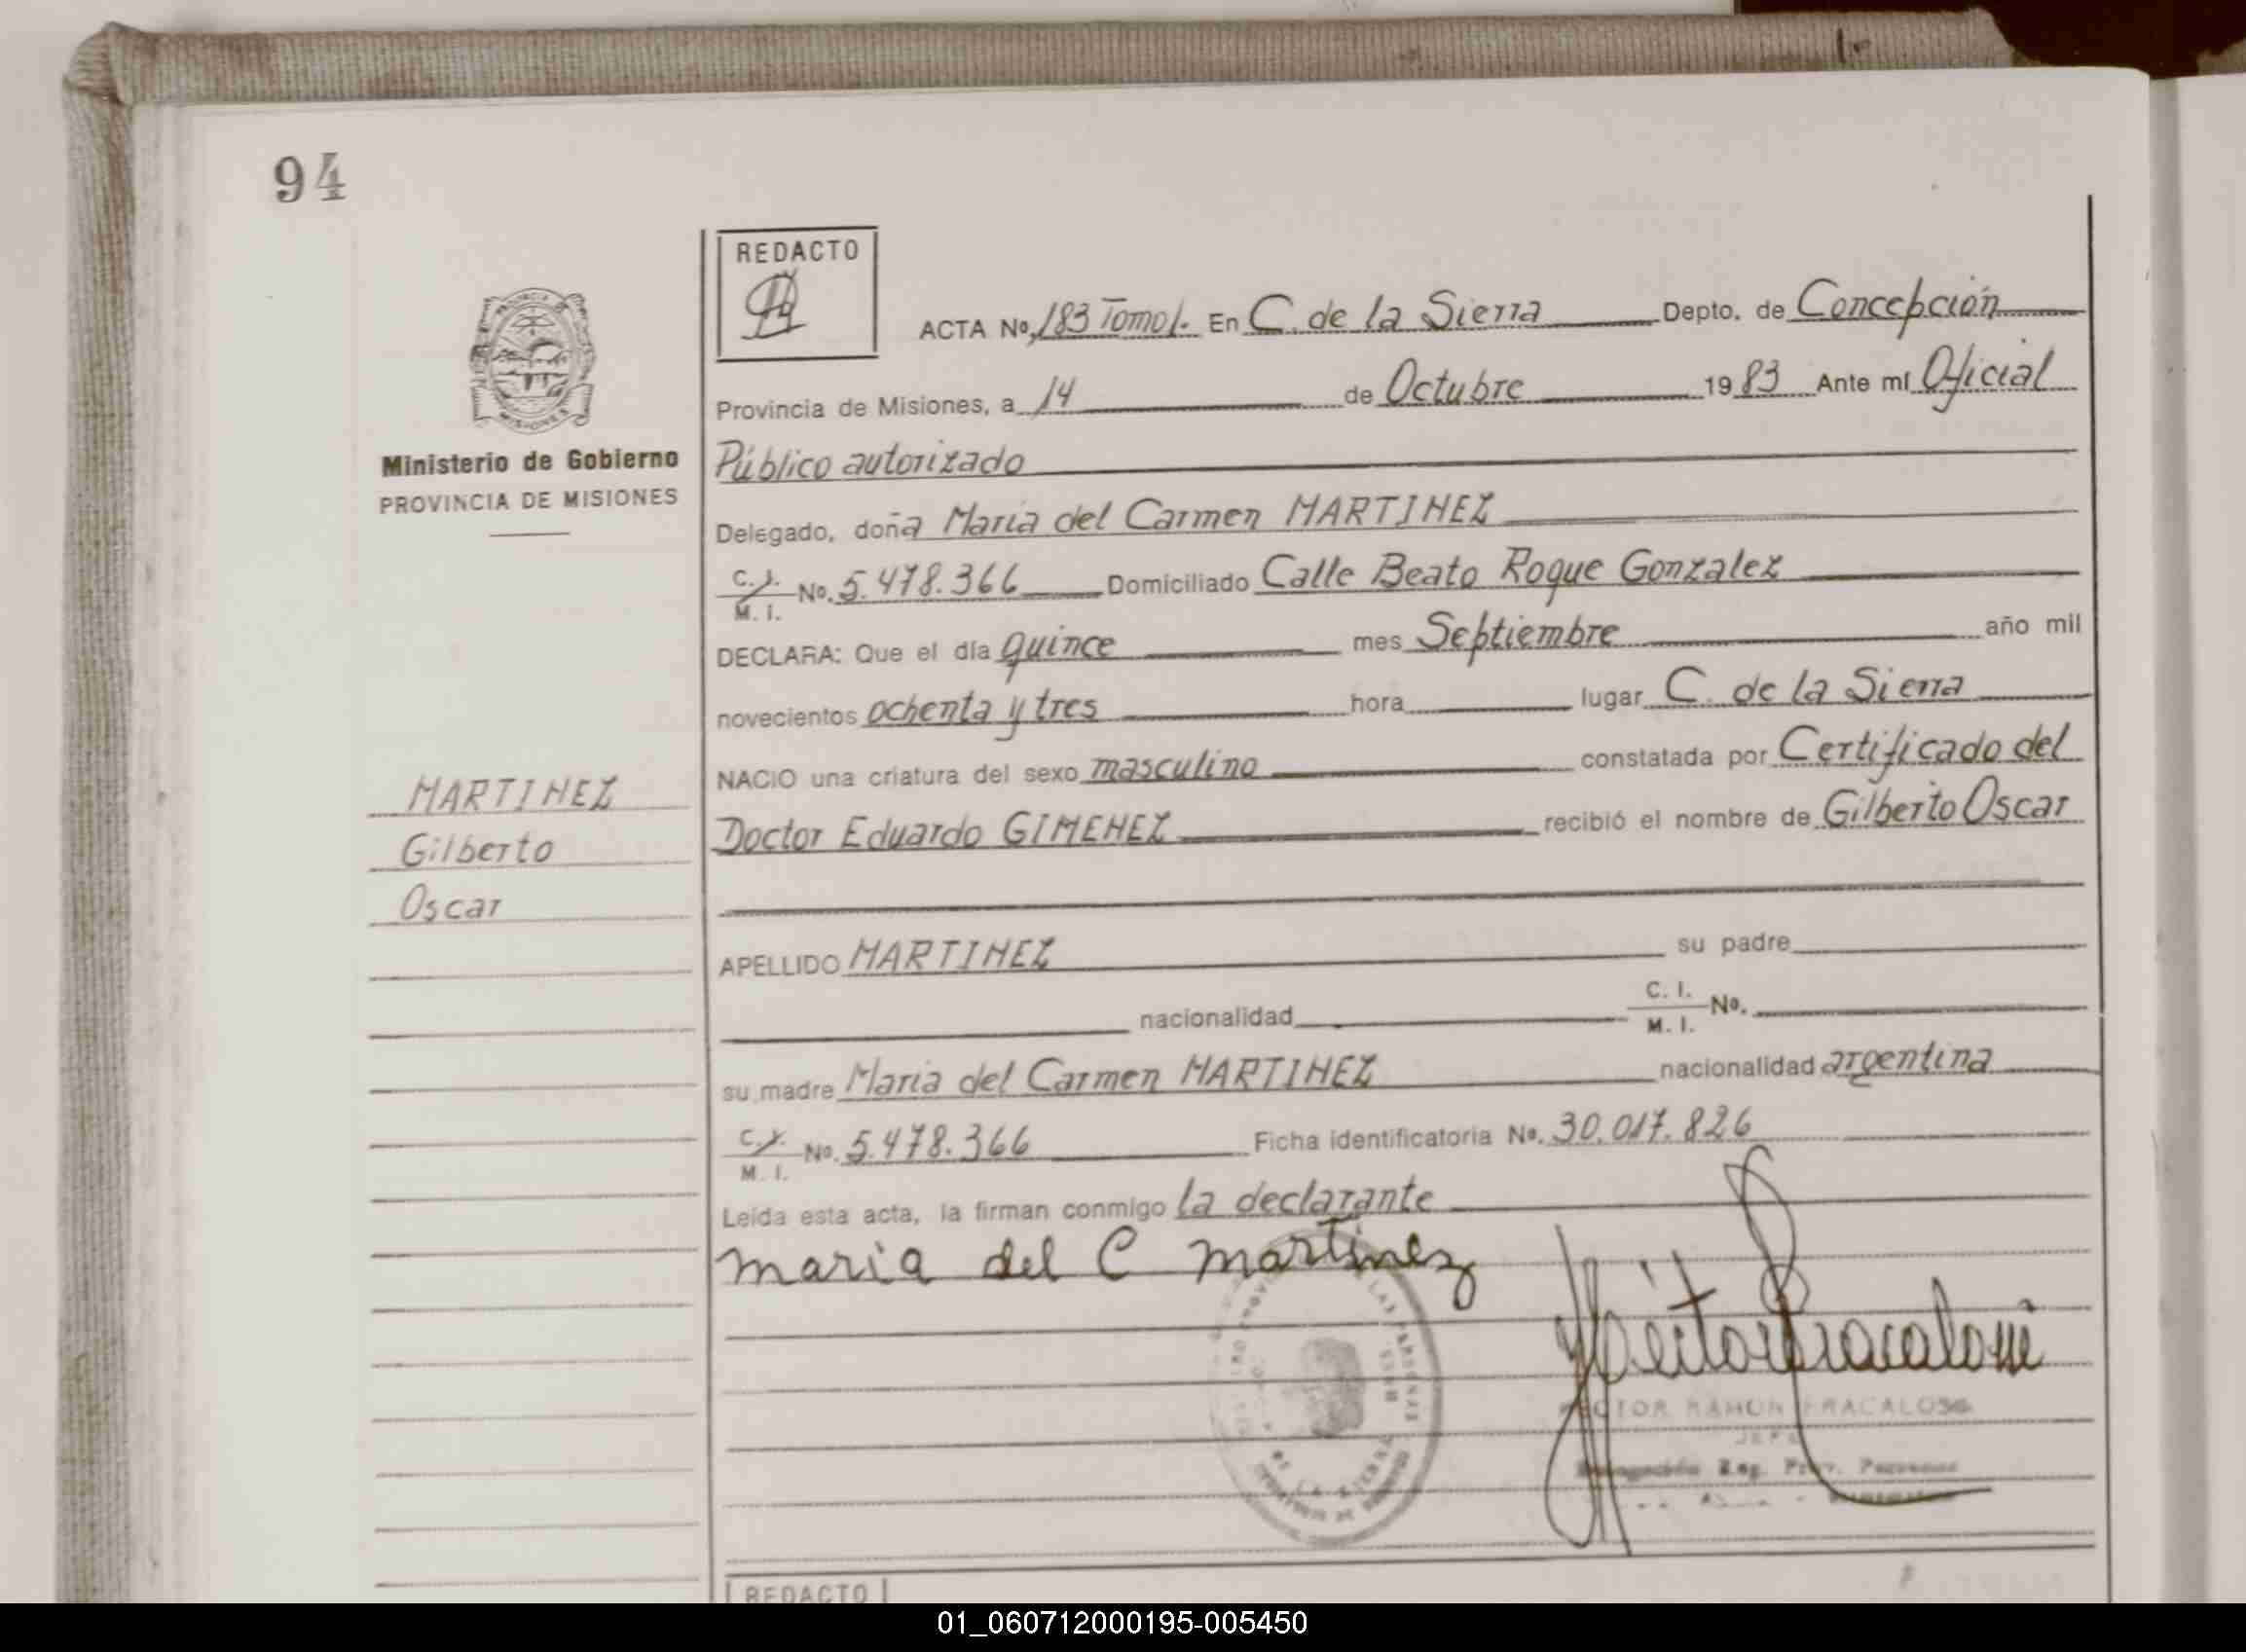 94
REDACTO
ACTA No. 183 Tomo I. En C. de la Sierra Depto. de Concepción
PROVINCIA DE MISIONES
Provincia de Misiones, a 14 de Octubre 1983 Ante mí Oficial
Público autorizado
Ministerio de Gobierno
PROVINCIA DE MISIONES
Delegado, doña María del Carmen MARTINEZ
C. I. M. I. No. 5.478.366 Domiciliado Calle Beato Roque Gonzalez
DECLARA: Que el día quince mes Septiembre año mil
novecientos ochenta y tres hora lugar C. de la Sierra
NACIO una criatura del sexo masculino constatada por Certificado del
MARTINEZ
Gilberto
Oscar
Doctor Eduardo GIMENEZ recibió el nombre de Gilberto Oscar
APELLIDO MARTINEZ su padre
nacionalidad C. I. M. I. No.
su madre María del Carmen MARTINEZ nacionalidad argentina
C. I. M. I. No. 5.478.366 Ficha identificatoria No. 30.017.826
Leída esta acta, la firman conmigo la declarante
maria del C martinez
HECTOR RAMON FRACALOSSI
JEFE
Delegación Reg. Prov. Personas
REDACTO
01_060712000195-005450